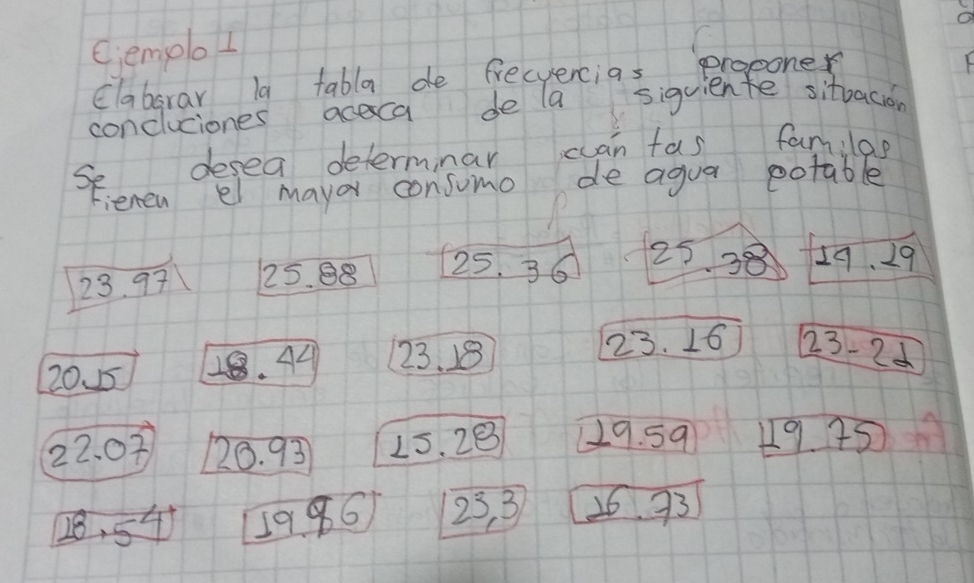 Ejemplo 1
Elaborar la tabla de frecuencias proponer
concluciones acerca de la siguiente situación
Se desea determinar cuántas familas
tienen el mayor consumo de agua potable
23.97 25.88 25.36 25.38 19.19
20.15 18.44 23.18 23.16 23-21
22.07 20.93 15.28 19.59 19.75
18.54 19.96 23,3 16.73